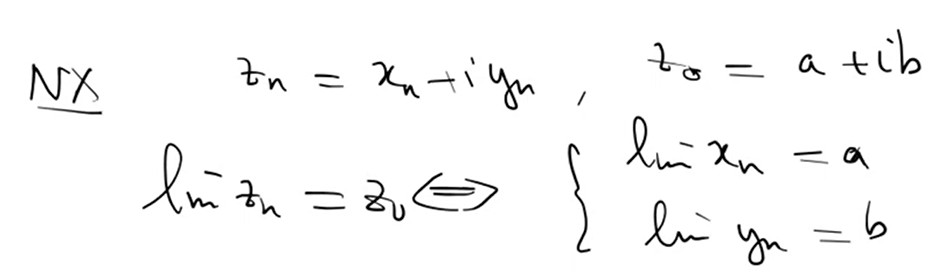 NX zₙ = xₙ + i yₙ , z₀ = a + ib
lim zₙ = z₀ ⇔ { lim xₙ = a
lim yₙ = b